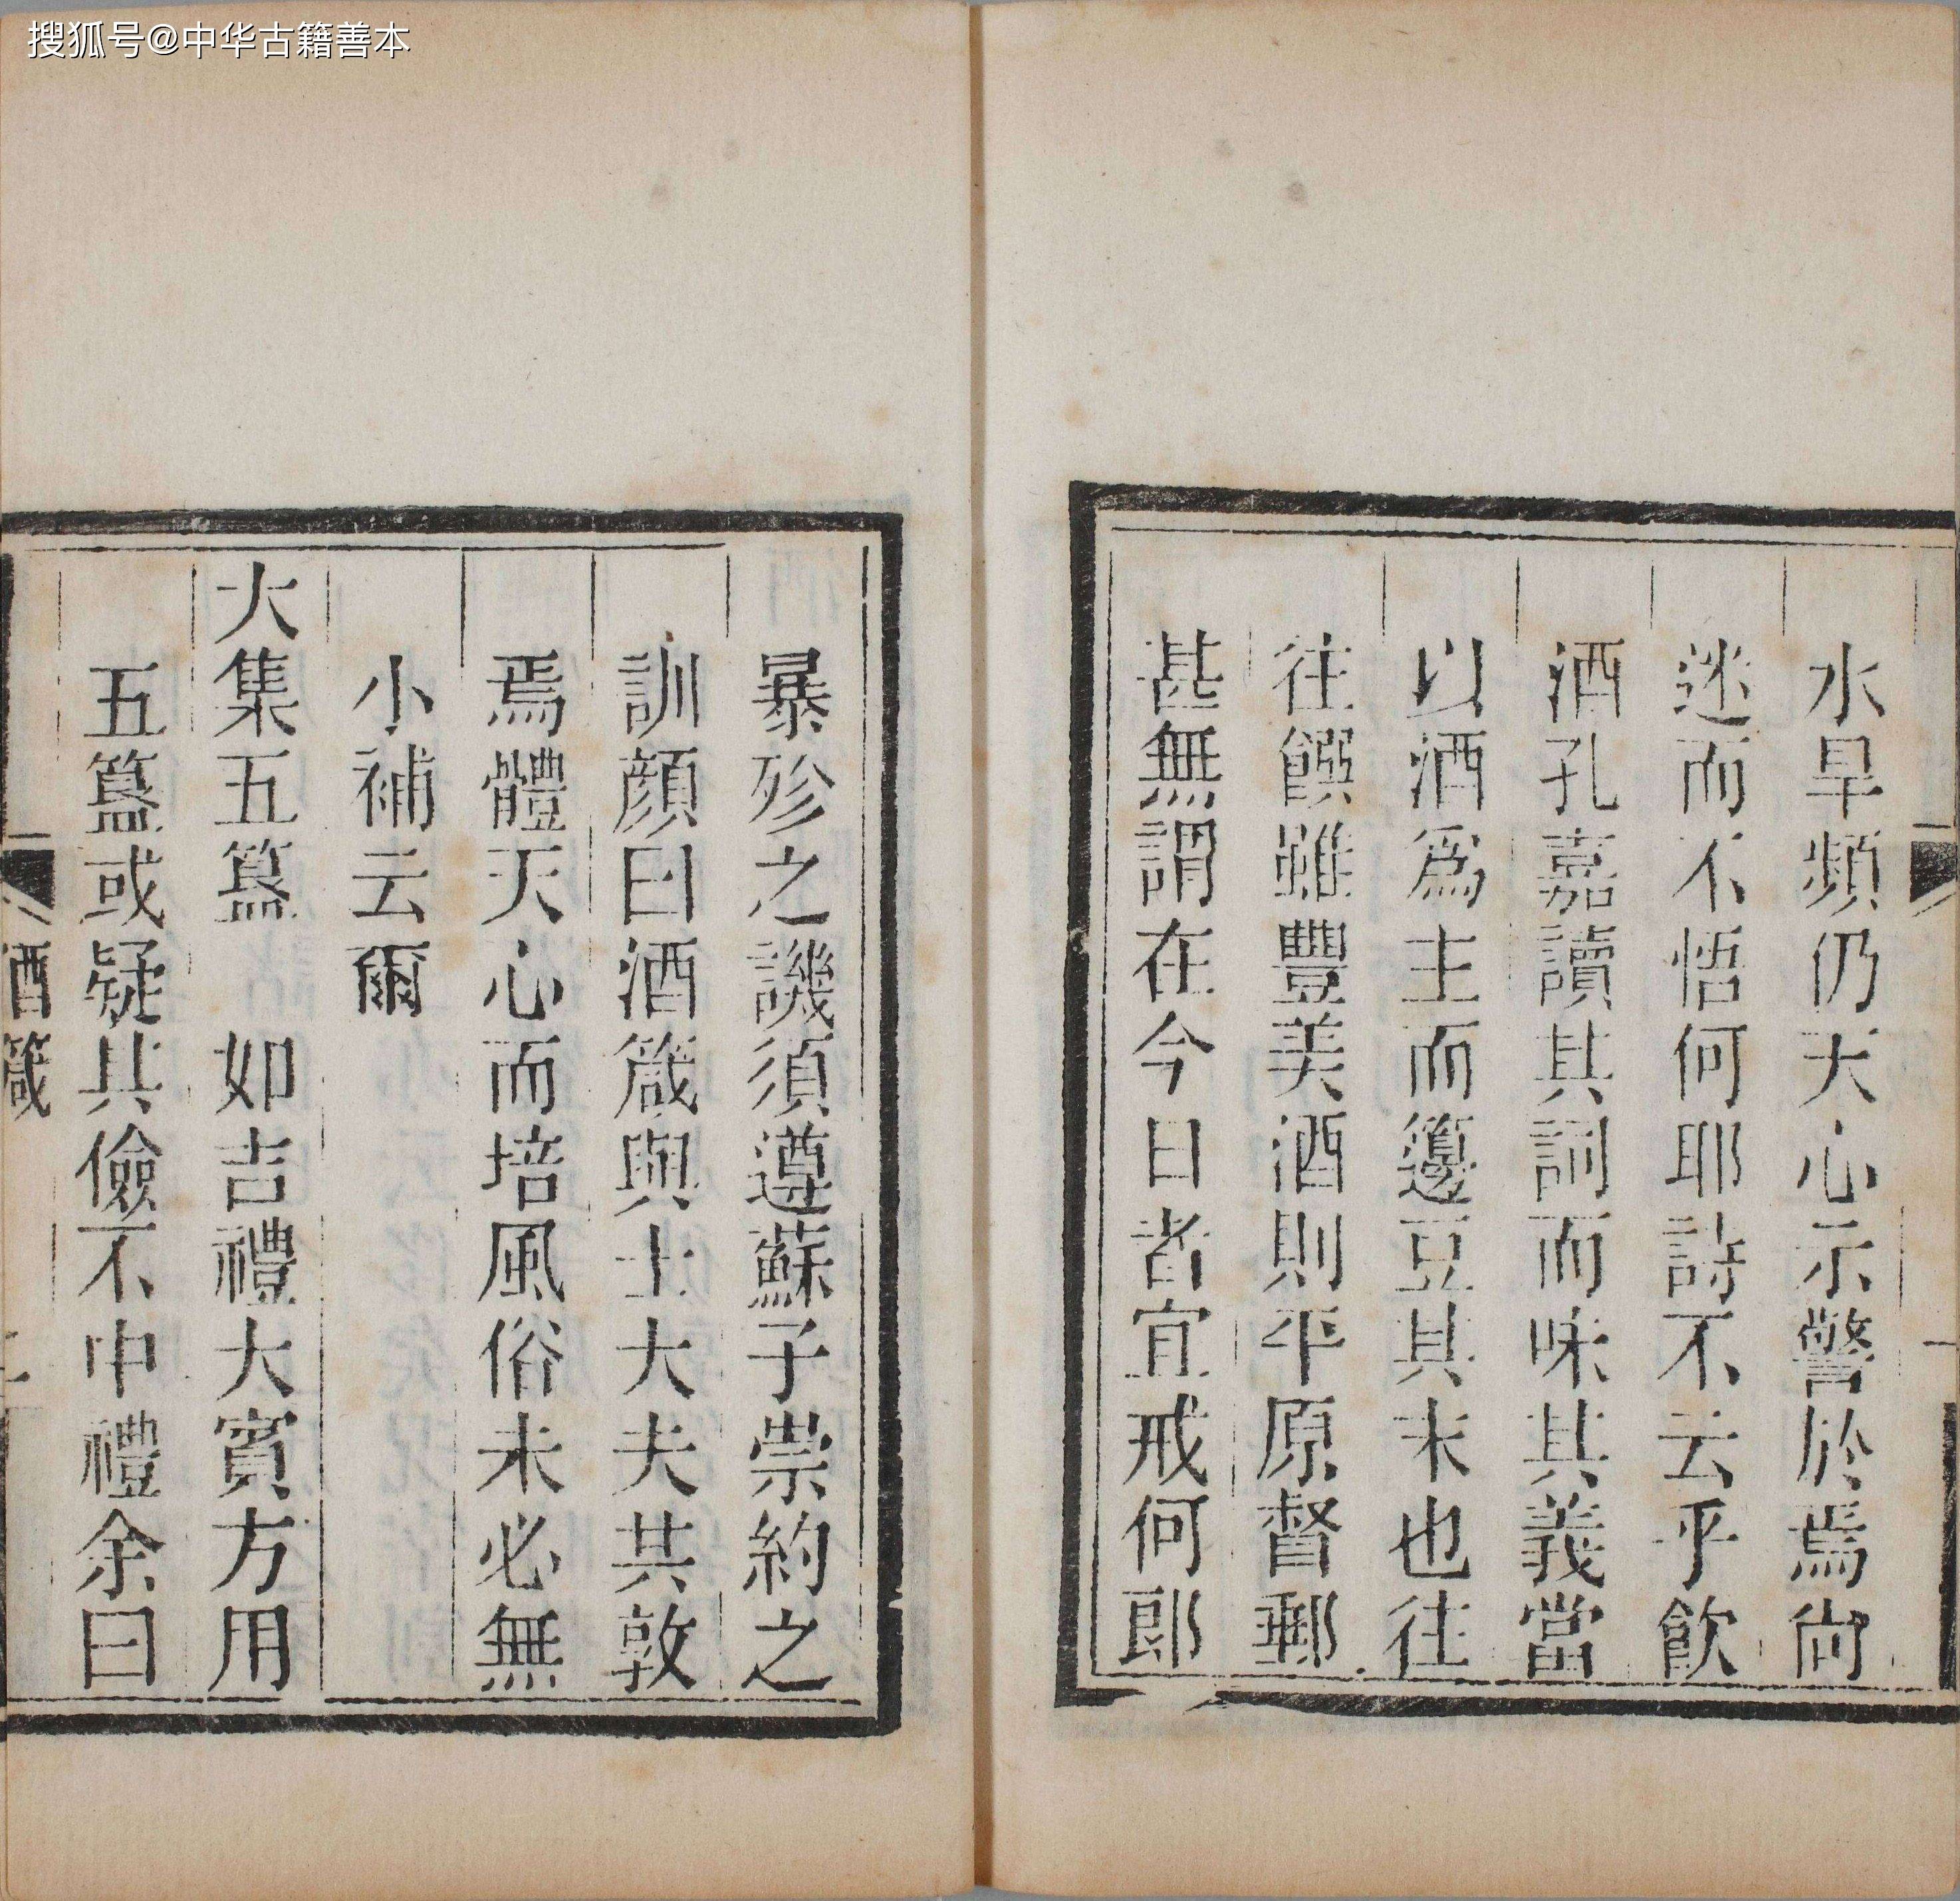 搜狐号@中华古籍善本
水旱頻仍天心示警於焉尙
迷而不悟何耶詩不云乎飮
酒孔嘉讀其詞而味其義當
以酒爲主而籩豆其末也往
往饌雖豐美酒則平原督郵
甚無謂在今日者宜戒何郞
暴殄之譏須遵蘇子崇約之
訓顔曰酒箴與士大夫共敦
焉體天心而培風俗未必無
小補云爾
大集五簋 如吉禮大賓方用
五簋或疑其儉不中禮余曰
酒箴